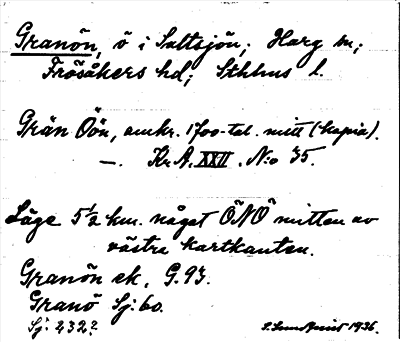 Granön, ö i Saltsjön; Harg sn;
Frösåkers hd; Sthlms l.
Grän Öön, omkr. 1700-tal. mitt (kopia).
—. Kr.A. XXII. N:o 35.
Läge 5 1/2 km. något ÖNÖ mitten av
västra kartkanten.
Granön ek. G.93.
Granö Sj: 60.
Sj: 232?
S. Lundkvist 1936.